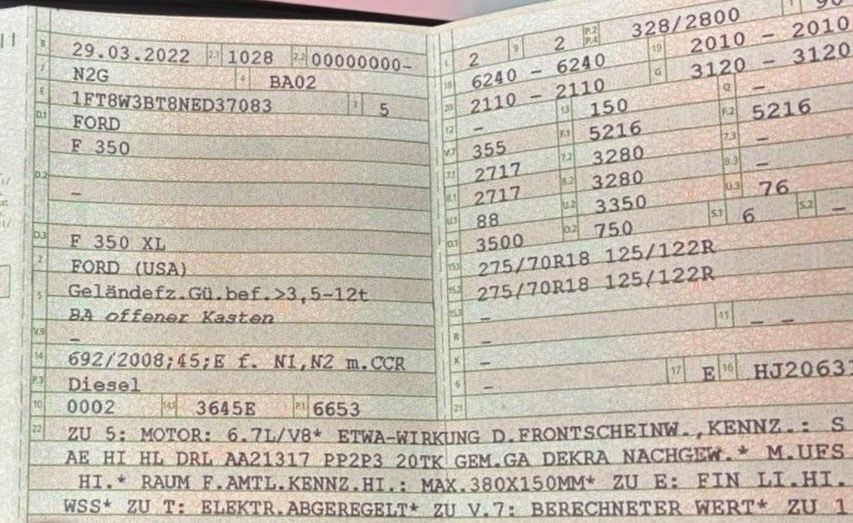 B 29.03.2022 2.1 1028 2.2 00000000-
J N2G 4 BA02
E 1FT8W3BT8NED37083 3 5
D.1 FORD
F 350
D.2 –
D.3 F 350 XL
2 FORD (USA)
5 Geländefz.Gü.bef.>3,5-12t
BA offener Kasten
V.9 –
14 692/2008;45;E f. N1,N2 m.CCR
P.3 Diesel
10 0002 14.1 3645E P.1 6653
L 2 9 2 P.2 P.4 328/2800 T
18 6240 – 6240 19 2010 – 2010
20 2110 – 2110 G 3120 – 3120
12 – 13 150 Q –
V.7 355 F.1 5216 F.2 5216
7.1 2717 7.2 3280 7.3 –
8.1 2717 8.2 3280 8.3 –
U.1 88 U.2 3350 U.3 76
O.1 3500 O.2 750 S.1 6 S.2 –
15.1 275/70R18 125/122R
15.2 275/70R18 125/122R
15.3 –
R – 11 – –
K –
6 – 17 E 16 HJ20631
21
22 ZU 5: MOTOR: 6.7L/V8* ETWA-WIRKUNG D.FRONTSCHEINW.,KENNZ.: S
AE HI HL DRL AA21317 PP2P3 20TK GEM.GA DEKRA NACHGEW.* M.UFS
HI.* RAUM F.AMTL.KENNZ.HI.: MAX.380X150MM* ZU E: FIN LI.HI.
WSS* ZU T: ELEKTR.ABGEREGELT* ZU V.7: BERECHNETER WERT* ZU 1